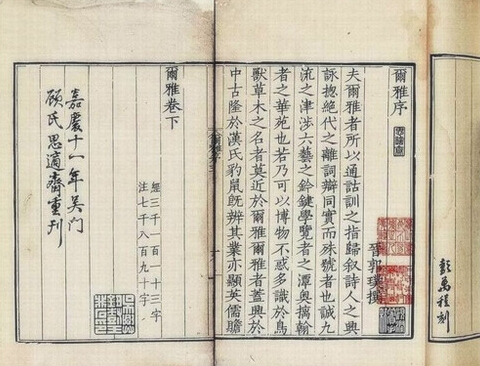 彭萬程刻
爾雅序
晉郭璞撰
夫爾雅者所以通詁訓之指歸叙詩人之興
詠揔絶代之離詞辯同實而殊號者也誠九
流之津涉六藝之鈐鍵學覽者之潭奥摛翰
者之華苑也若乃可以博物不惑多識於鳥
獸草木之名者莫近於爾雅爾雅者蓋興於
中古隆於漢氏豹鼠旣辨其業亦顯英儒贍
爾雅卷下
經三千一百一十三字
注七千八百九十字
嘉慶十一年吳門
顧氏思適齋重刊